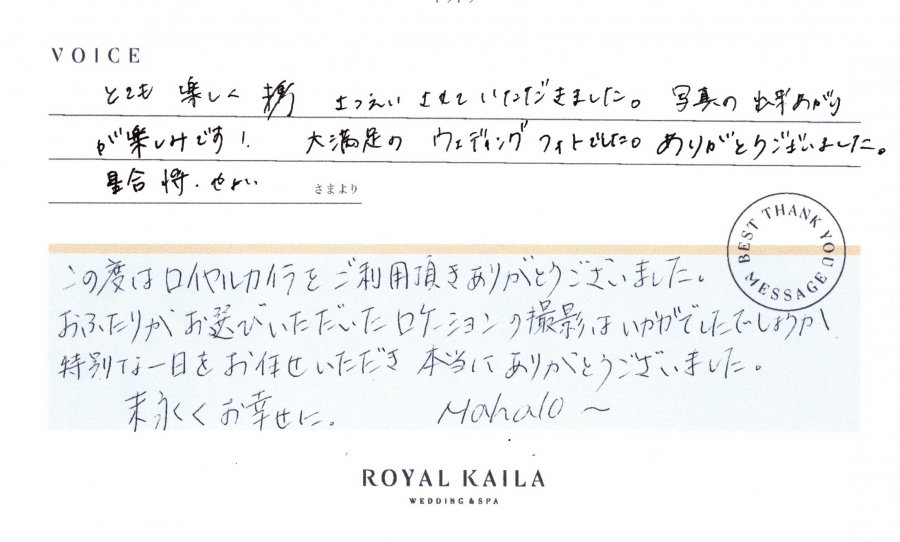 VOICE
とても 楽しく さつえい させて いただきました。 写真の 出来あがり
が 楽しみです! 大満足の ウェディング フォトでした。 ありがとうございました。
星合 将・せい さまより
BEST THANK YOU MESSAGE
この度はロイヤルカイラをご利用頂きありがとうございました。
おふたりが お選びいただいたロケーションの撮影はいかがでしたでしょうか
特別な一日をお任せいただき 本当にありがとうございました。
末永くお幸せに。 Mahalo ~
ROYAL KAILA
WEDDING & SPA